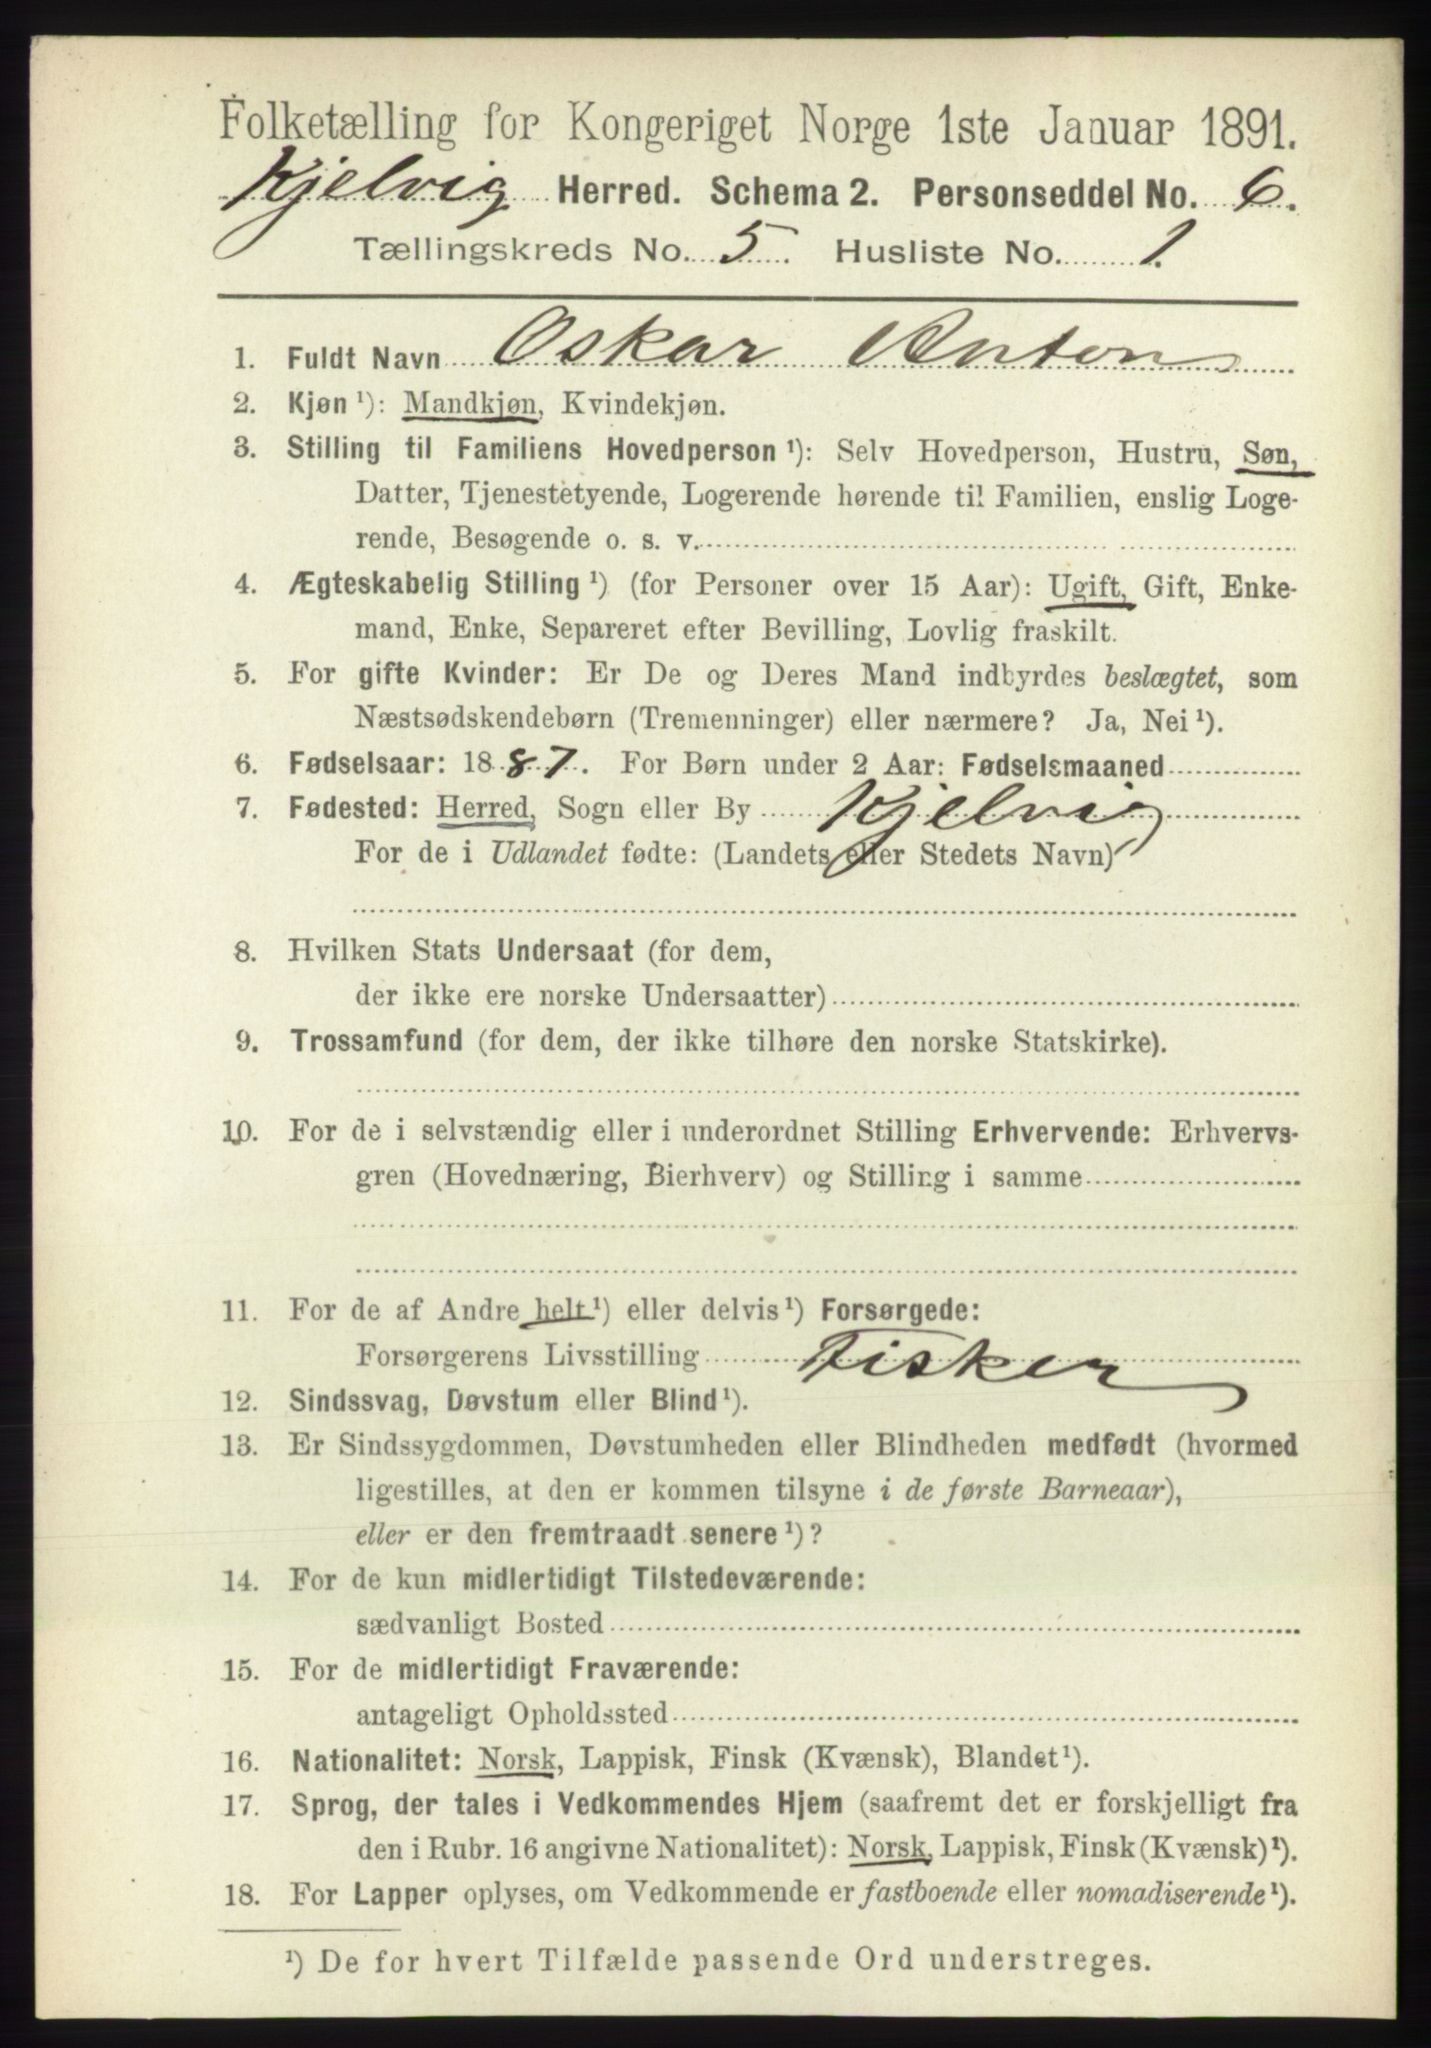 Folketælling for Kongeriget Norge 1ste Januar 1891.
Kjelvig Herred. Schema 2. Personseddel No. 6.
Tællingskreds No. 5. Husliste No. 1.
1. Fuldt Navn Oskar Anton
2. Kjøn ¹): Mandkjøn, Kvindekjøn.
3. Stilling til Familiens Hovedperson ¹): Selv Hovedperson, Hustru, Søn,
Datter, Tjenestetyende, Logerende hørende til Familien, enslig Loge-
rende, Besøgende o. s. v.
4. Ægteskabelig Stilling ¹) (for Personer over 15 Aar): Ugift, Gift, Enke-
mand, Enke, Separeret efter Bevilling, Lovlig fraskilt.
5. For gifte Kvinder: Er De og Deres Mand indbyrdes beslægtet, som
Næstsødskendebørn (Tremenninger) eller nærmere? Ja, Nei ¹).
6. Fødselsaar: 1887. For Børn under 2 Aar: Fødselsmaaned
7. Fødested: Herred, Sogn eller By Kjelvig
For de i Udlandet fødte: (Landets eller Stedets Navn)
8. Hvilken Stats Undersaat (for dem,
der ikke ere norske Undersaatter)
9. Trossamfund (for dem, der ikke tilhøre den norske Statskirke).
10. For de i selvstændig eller i underordnet Stilling Erhvervende: Erhvervs-
gren (Hovednæring, Bierhverv) og Stilling i samme
11. For de af Andre helt ¹) eller delvis ¹) Forsørgede:
Forsørgerens Livsstilling Fisker
12. Sindssvag, Døvstum eller Blind ¹).
13. Er Sindssygdommen, Døvstumheden eller Blindheden medfødt (hvormed
ligestilles, at den er kommen tilsyne i de første Barneaar),
eller er den fremtraadt senere ¹)?
14. For de kun midlertidigt Tilstedeværende:
sædvanligt Bosted
15. For de midlertidigt Fraværende:
antageligt Opholdssted
16. Nationalitet: Norsk, Lappisk, Finsk (Kvænsk), Blandet ¹).
17. Sprog, der tales i Vedkommendes Hjem (saafremt det er forskjelligt fra
den i Rubr. 16 angivne Nationalitet): Norsk, Lappisk, Finsk (Kvænsk) ¹).
18. For Lapper oplyses, om Vedkommende er fastboende eller nomadiserende ¹).
¹) De for hvert Tilfælde passende Ord understreges.